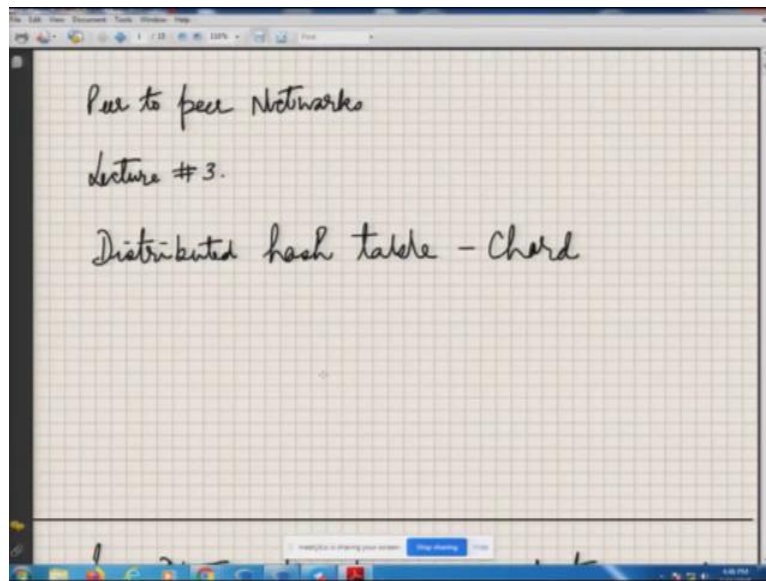 File Edit View Document Tools Window Help
Peer to peer Networks
Lecture #3.
Distributed hash table - Chord
Stop sharing